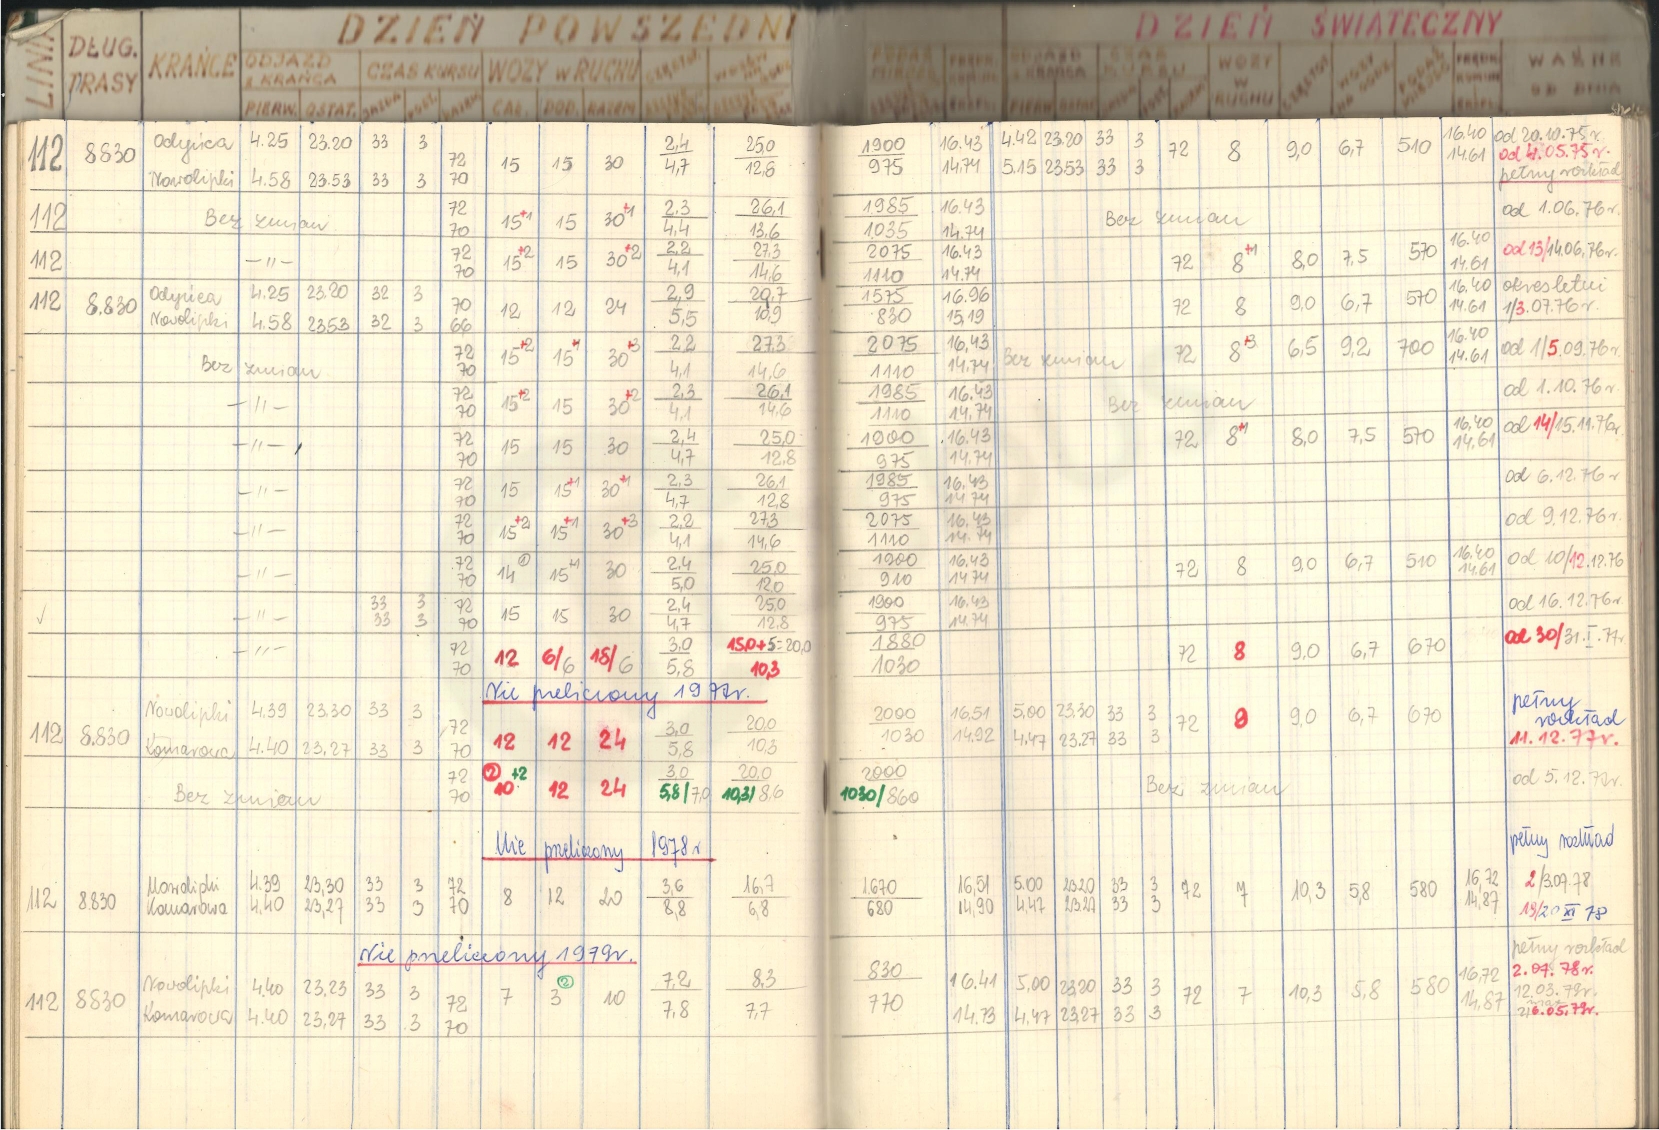 DZIEŃ POWSZEDNI DZIEŃ ŚWIĄTECZNY
LINIA DŁUG. TRASY KRAŃCE ODJAZD z KRAŃCA CZAS KURSU WOZY w RUCHU WOZY W RUCHU WAŻNE OD DNIA
PIERW. OSTAT. CAŁ. DOD. RAZEM
112 8830 Odyńca 4.25 23.20 33 3 72 15 15 30 2,4 25,0 1900 16.43 4.42 23.20 33 3 72 8 9,0 6,7 510 16.40 od 20.10.75r.
Nowolipki 4.58 23.53 33 3 70 4,7 12,6 975 14.74 5.15 23.53 33 3 14.61 od 4.05.75r.
pełny rozkład
112 Bez zmian 72 15+1 15 30+1 2,3 26,1 1985 16.43 Bez zmian od 1.06.76r.
70 4,4 13,6 1035 14.74
112 —"— 72 15+2 15 30+2 2,2 27,3 2075 16.43 72 8+1 8,0 7,5 570 16.40 od 13/14.06.76r.
70 4,1 14,6 1110 14.74 14.61
112 8.830 Odyńca 4.25 23.20 32 3 70 12 12 24 2,9 20,7 1575 16.96 72 8 9,0 6,7 570 16.40 okres letni
Nowolipki 4.58 23.53 32 3 66 5,5 10,9 830 15,19 14.61 1/3.07.76r.
Bez zmian 72 15+2 15+1 30+3 2,2 27,3 2075 16,43 Bez zmian 72 8+3 6,5 9,2 700 16.40 od 1/5.09.76r.
70 4,1 14,6 1110 14.74 14.61
—"— 72 15+2 15 30+2 2,3 26,1 1985 16.43 Bez zmian od 1.10.76r.
70 4,1 14,6 1110 14.74
—"— 72 15 15 30 2,4 25,0 1900 16.43 72 8+1 8,0 7,5 570 16,40 od 14/15.11.76r.
70 4,7 12,8 975 14.74 14,61
—"— 72 15 15+1 30+1 2,3 26,1 1985 16.43 od 6.12.76r
70 4,7 12,8 975 14.74
—"— 72 15+2 15+1 30+3 2,2 27,3 2075 16.43 od 9.12.76r.
70 4,1 14,6 1110 14.74
—"— 72 14 15+1 30 2,4 25,0 1900 16.43 72 8 9,0 6,7 510 16.40 od 10/12.12.76
70 5,0 12,0 910 14.74 14.61
✓ —"— 33 3 72 15 15 30 2,4 25,0 1900 16.43 od 16.12.76r.
33 3 70 4,7 12.8 975 14.74
—"— 72 12 6/6 18/6 3,0 15,0+5=20,0 1880 72 8 9,0 6,7 670 od 30/31.I.77r
70 5,8 10,3 1030
Nie przeliczony 1977r.
112 8.830 Nowolipki 4.39 23.30 33 3 72 12 12 24 3,0 20.0 2000 16,51 5,00 23.30 33 3 72 9 9,0 6,7 670 pełny rozkład
Komarowa 4.40 23,27 33 3 70 5,8 10,3 1030 14.92 4.47 23.27 33 3 11.12.77r.
Bez zmian 72 (2) 10 +2 12 24 3,0 20,0 2000 Bez zmian od 5.12.77r.
70 5,8/7,0 10,3/8,6 1030/860
Nie przeliczony 1978r
pełny rozkład
112 8.830 Nowolipki 4.39 23,30 33 3 72 8 12 20 3,6 16,7 1.670 16,51 5.00 23.20 33 3 72 7 10,3 5,8 580 16,72 2/3.07.78
Komarowa 4.40 23,27 33 3 70 8,8 6,8 680 14,90 4,47 23.27 33 3 14,87 19/20 XI 78
Nie przeliczony 1979r.
pełny rozkład
112 8830 Nowolipki 4.40 23,23 33 3 72 7 3 (2) 10 7,2 8,3 830 16.41 5,00 23,20 33 3 72 7 10,3 5,8 580 16,72 2.07.78r.
Komarowa 4.40 23,27 33 3 70 7,8 7,7 770 14.73 4,47 23,27 33 3 14,87 12.03.79r.
6.05.79r.